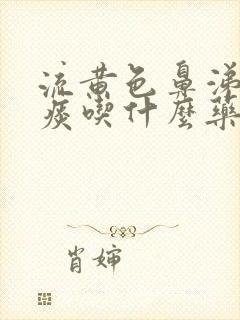 流黄色鼻涕
痰喫什麼藥
肖婶